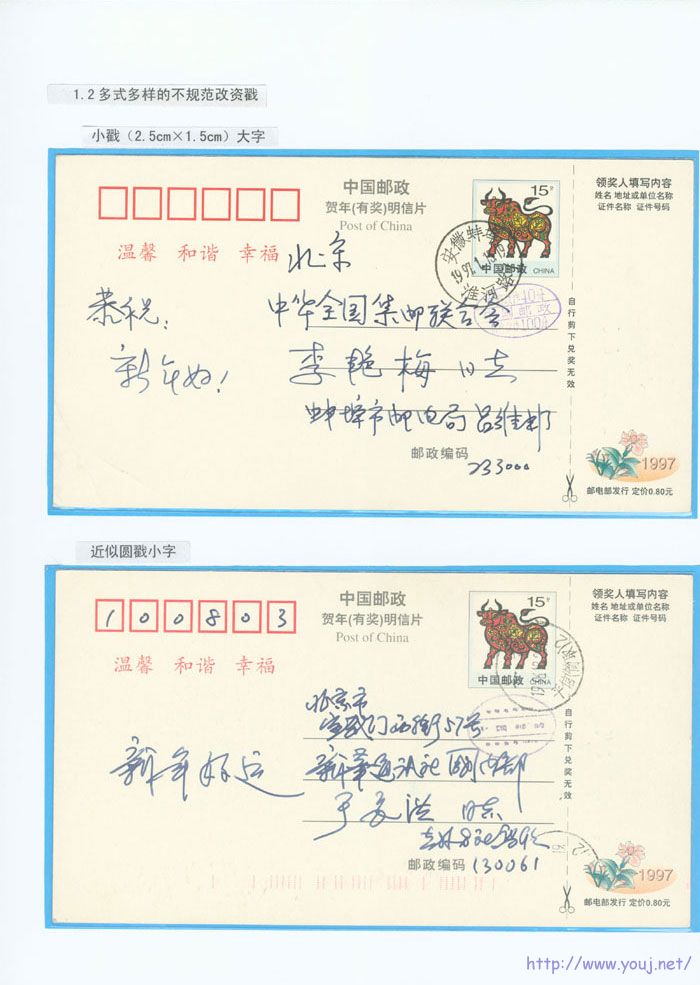 1.2多式多样的不规范改资戳
小戳（2.5cm×1.5cm）大字
中国邮政
贺年(有奖)明信片
Post of China
15分
中国邮政 CHINA
安徽蚌埠
领奖人填写内容
姓名 地址或单位名称
证件名称 证件号码
温馨 和谐 幸福
北京
恭祝：
中华全国集邮联合会
新年好！
李艳梅同志
蚌埠市邮电局吕维邦
自行剪下兑奖无效
邮政编码
233000
1997
邮电部发行 定价0.80元
近似圆戳小字
100803
中国邮政
贺年(有奖)明信片
Post of China
15分
中国邮政 CHINA
领奖人填写内容
姓名 地址或单位名称
证件名称 证件号码
温馨 和谐 幸福
北京市
宣武门西街57号
新年好运
新华通讯社国内部
同志
自行剪下兑奖无效
邮政编码 130061
1997
邮电部发行 定价0.80元
http://www.youj.net/